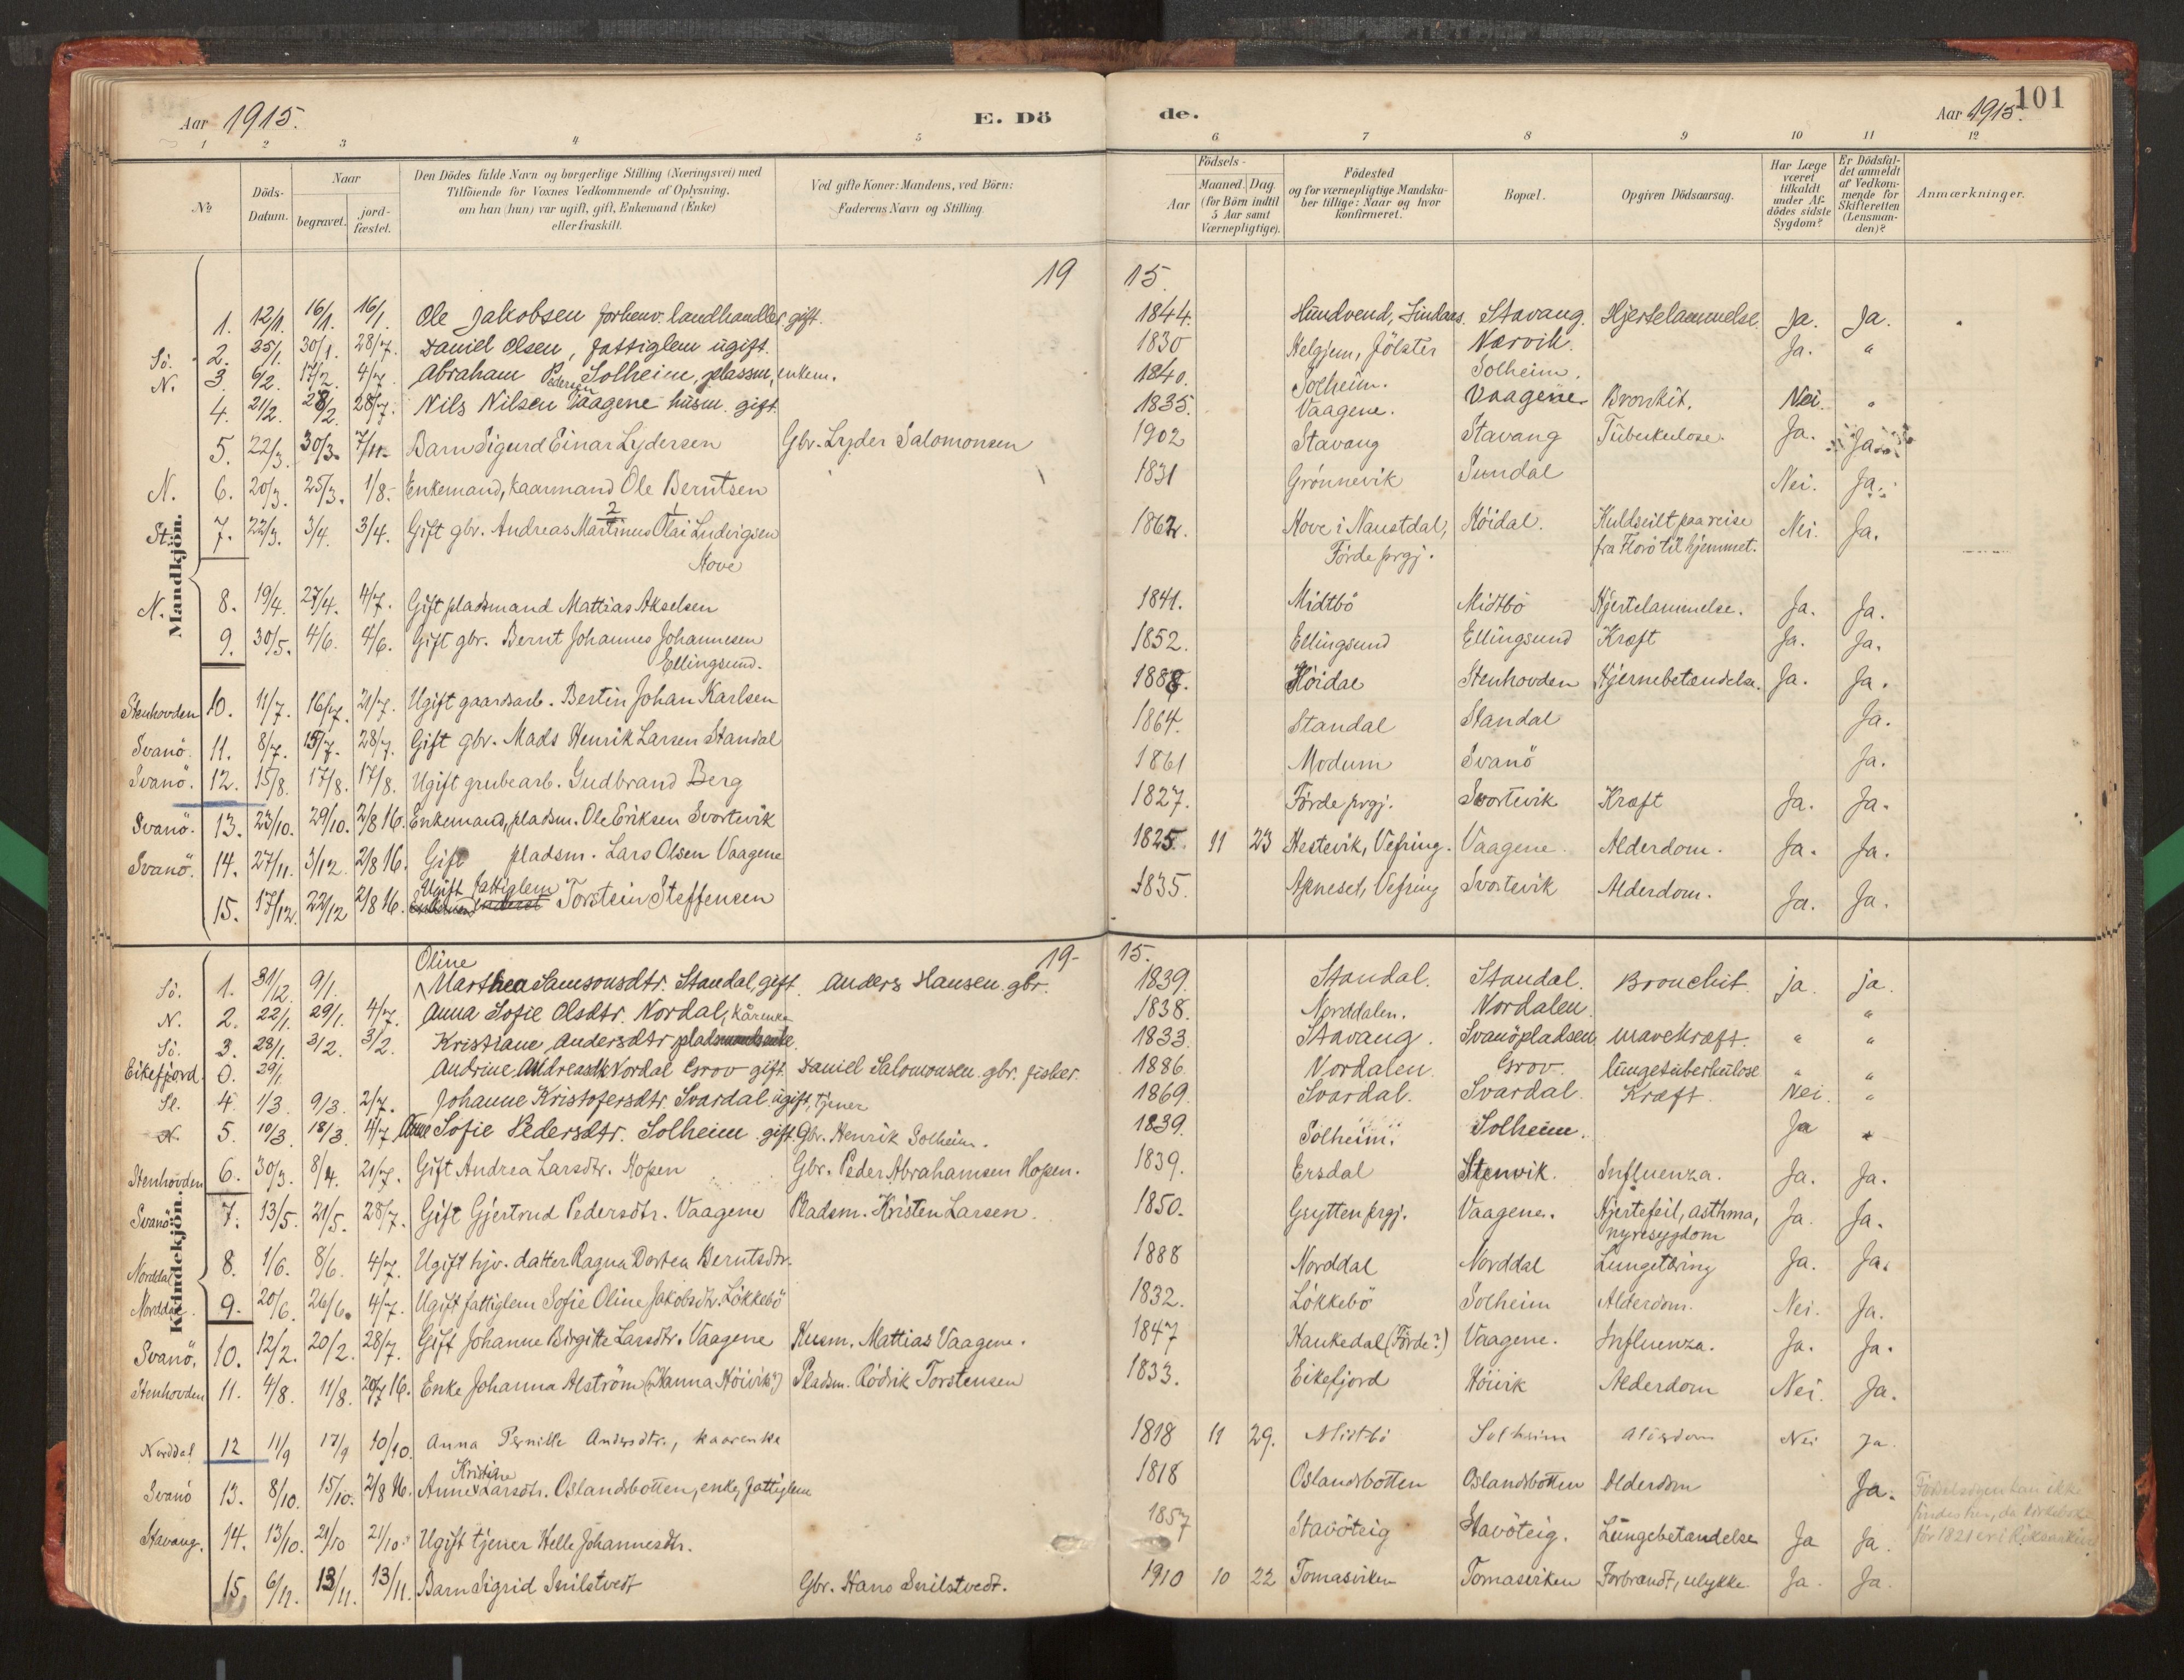 Aar 1915. E. Dö de. Aar 1915. 101
1 2 3 4 5 6 7 8 9 10 11 12
№ Döds-Datum. Naar begravet. jord-fæstet. Den Dödes fulde Navn og borgerlige Stilling (Næringsvei) med Tilföiende for Voxnes Vedkommende af Oplysning, om han (hun) var ugift, gift, Enkemand (Enke) eller fraskilt. Ved gifte Koner: Mandens, ved Börn: Faderens Navn og Stilling. Födsels- Aar Maaned. Dag. (for Börn indtil 5 Aar samt Værnepligtige). Födested og for værnepligtige Mandskaber tillige: Naar og hvor konfirmeret. Bopæl. Opgiven Dödsaarsag. Har Læge været tilkaldt under Afdödes sidste Sygdom? Er Dödsfaldet anmeldt af Vedkommende for Skifteretten (Lensmanden)? Anmærkninger.
19 15.
Mandkjön.
1. 12/1. 16/1. 16/1. Ole Jakobsen forhenv. landhandler gift. 1844. Hundvend, Lindaas. Stavang. Hjertelammelse. Ja. Ja.
Sö. 2. 25/1. 30/1. 28/7. Daniel Olsen, fattiglem ugift. 1830 Helgjem, Jölster Nærvik. Ja. "
N. 3. 6/2. 17/2. 4/7. Abraham Pedersen Solheim, plassm, enkem. 1840. Solheim. Solheim.
4. 21/2. 28/2. 28/7. Nils Nilsen Vaagene husm. gift. 1835. Vaagene. Vaagene Bronkit. Nei. "
5. 22/3. 30/3. 7/11. Barn Sigurd Einar Lydersen Gbr. Lyder Salomonsen 1902 Stavang Stavang Tuberkulose. Ja. Ja.
N. 6. 20/3. 25/3. 1/8. Enkemand, kaarmand Ole Berntsen 1831 Grönnevik Sundal Nei. Ja.
St. 7. 22/3. 3/4. 3/4. Gift gbr. Andreas Martinus 2 Olai 1 Ludvigsen Hove 1862. Hove i Naustdal, Förde prgj. Höidal. Kuldseilt paa reise fra Florö til hjemmet. Nei. Ja.
N. 8. 19/4. 27/4. 4/7. Gift pladsmand Mattias Akselsen 1841. Midtbö Midtbö Hjertelammelse. Ja. Ja.
9. 30/5. 4/6. 4/6. Gift gbr. Bernt Johannes Johannesen Ellingsund. 1852. Ellingsund Ellingsund Kræft Ja. Ja.
Stenhovden 10. 11/7. 16/7. 21/7. Ugift gaardsarb. Bertin Johan Karlsen 1888. Höidal Stenhovden Hjernebetændelse. Ja. Ja.
Svanö. 11. 8/7. 15/7. 28/7. Gift gbr. Mads Henrik Larsen Standal 1864. Standal Standal Ja.
Svanö. 12. 15/8. 17/8. 17/8. Ugift grubearb. Gudbrand Berg 1861 Modum Svanö Ja.
Svanö. 13. 23/10. 29/10. 2/8 16. Enkemand, pladsm. Ole Eriksen Svortevik 1827. Förde prgj. Svortevik Kræft Ja. Ja.
Svanö. 14. 27/11. 3/12. 2/8 16. Gift pladsm. Lars Olsen Vaagene 1825. 11 23 Hestevik, Vefring. Vaagene. Alderdom. Ja. Ja.
15. 17/12. 22/12 2/8 16. Ugift fattiglem Torstein Steffensen 1835. Apneset, Vefring Svortevik Alderdom. Ja. Ja.
19- 15.
Kvindekjön.
Sö. 1. 31/12. 9/1. Oline Marthea Samsonsdtr. Standal, gift. Anders Hansen. gbr. 1839. Standal. Standal. Bronchit. ja. ja.
N. 2. 22/1. 29/1. 4/7. Anna Sofie Olsdtr. Nordal, kårenke 1838. Norddalen. Nordalen. "
Sö. 3. 28/1. 3/2. 3/2. Kristiane Andersdtr pladsmandsenke. 1833. Stavang. Svanöpladsen, mavekræft. " "
Eikefjord. 0. 29/1. Andrine Andreasdtr Nordal Grov gift. Daniel Salomonsen. gbr. fisker. 1886. Nordalen. Grov. lungetuberkulose " "
St. 4. 1/3. 9/3. 2/7. Johanne Kristofersdtr. Svardal. ugift, tjener 1869. Svardal. Svardal. Kræft. Nei. "
N. 5. 10/3. 18/3. 4/7. Ane Sofie Pedersdtr. Solheim gift. Gbr. Henrik Solheim. 1839. Solheim. Solheim. Ja "
Stenhovden 6. 30/3. 8/4. 21/7. Gift Andrea Larsdtr. Hopen Gbr. Peder Abrahamsen Hopen. 1839. Ersdal Stenvik. Influenza. Ja. Ja.
Svanö 7. 13/5. 21/5. 28/7. Gift Gjertrud Pedersdtr. Vaagene Pladsm. Kristen Larsen. 1850. Grytten prgj. Vaagene. Hjertefeil, asthma, nyresygdom Ja. Ja.
Norddal 8. 1/6. 8/6. 4/7. Ugift hjv. datter Ragna Dortea Berntsdtr. 1888 Norddal Norddal Lungetæring Ja. Ja.
Norddal. 9. 20/6. 26/6. 4/7. Ugift fattiglem Sofie Oline Jakobsdtr. Lökkebö 1832. Lökkebö Solheim Alderdom. Nei. Ja.
Svanö. 10. 12/2. 20/2. 28/7. Gift Johanne Birgitte Larsdtr. Vaagene Husm. Mattias Vaagene. 1847 Haukedal (Förde?) Vaagene. Influenza. Ja. Ja.
Stenhovden 11. 4/8. 11/8. 20/7 16. Enke Johanna Alström (Hanna Höivik?) Pladsm. Rödrik Torstensen 1833. Eikefjord Höivik Alderdom Nei. Ja.
Norddal 12 11/9 17/9 10/10. Anna Pernille Andersdtr., kaarenke 1818 11 29. Midtbö Solheim Alderdom Nei Ja
Svanö 13. 8/10. 15/10. 2/8 16. Anne Kristine Larsdtr. Oslandsbotten, enke, fattiglem 1818 Oslandsbotten Oslandsbotten Alderdom Ja. Födselsdagen kan ikke findes her, da kirkebok för 1821 er i Riksarkivet
Stavang. 14. 13/10. 21/10 21/10. Ugift tjener Helle Johannesdtr. 1857 Stavöteig Stavöteig. Lungebetændelse Ja Ja.
15. 6/11. 13/11. 13/11. Barn Sigrid Snilstvedt Gbr. Hans Snilstvedt. 1910 10 22 Tomasviken Tomasviken Forbrændt, ulykke. Ja. Ja.